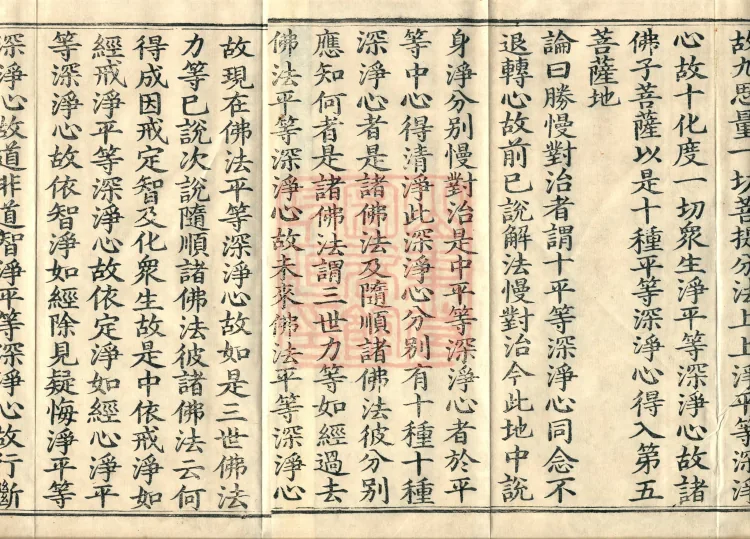 故九思量一切菩提分法上上淨平等深淨
心故十化度一切衆生淨平等深淨心故諸
佛子菩薩以是十種平等深淨心得入第五
菩薩地
論曰勝慢對治者謂十平等深淨心同念不
退轉心故前已說解法慢對治今此地中說
身淨分別慢對治是中平等深淨心者於平
等中心得清淨此深淨心分別有十種十種
深淨心者是諸佛法及隨順諸佛法彼分別
應知何者是諸佛法謂三世力等如經過去
佛法平等深淨心故未來佛法平等深淨心
故現在佛法平等深淨心故如是三世佛法
力等已說次說隨順諸佛法彼諸佛法云何
得成因戒定智及化衆生故是中依戒淨如
經戒淨平等深淨心故依定淨如經心淨平
等深淨心故依智淨如經除見疑悔淨平等
深淨心故道非道智淨平等深淨心故行斷